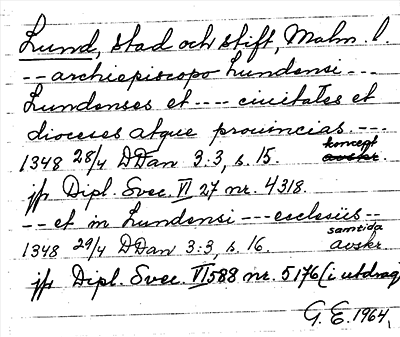 Lund, stad och stift, Malm. l.
-- archiepiscopo Lundensi ---
Lundenses et ---- ciuitates et
dioceses atque prouincias. ---
1348 28/4 DDan 3:3, s. 15. koncept avskr.
jfr Dipl. Svec. VI 27 nr. 4318.
-- et in Lundensi --- ecclesiis --
1348 29/4 DDan 3:3, s. 16. samtida avskr
jfr Dipl. Svec. VI 588 nr. 5176 (i utdrag
G. E. 1964.